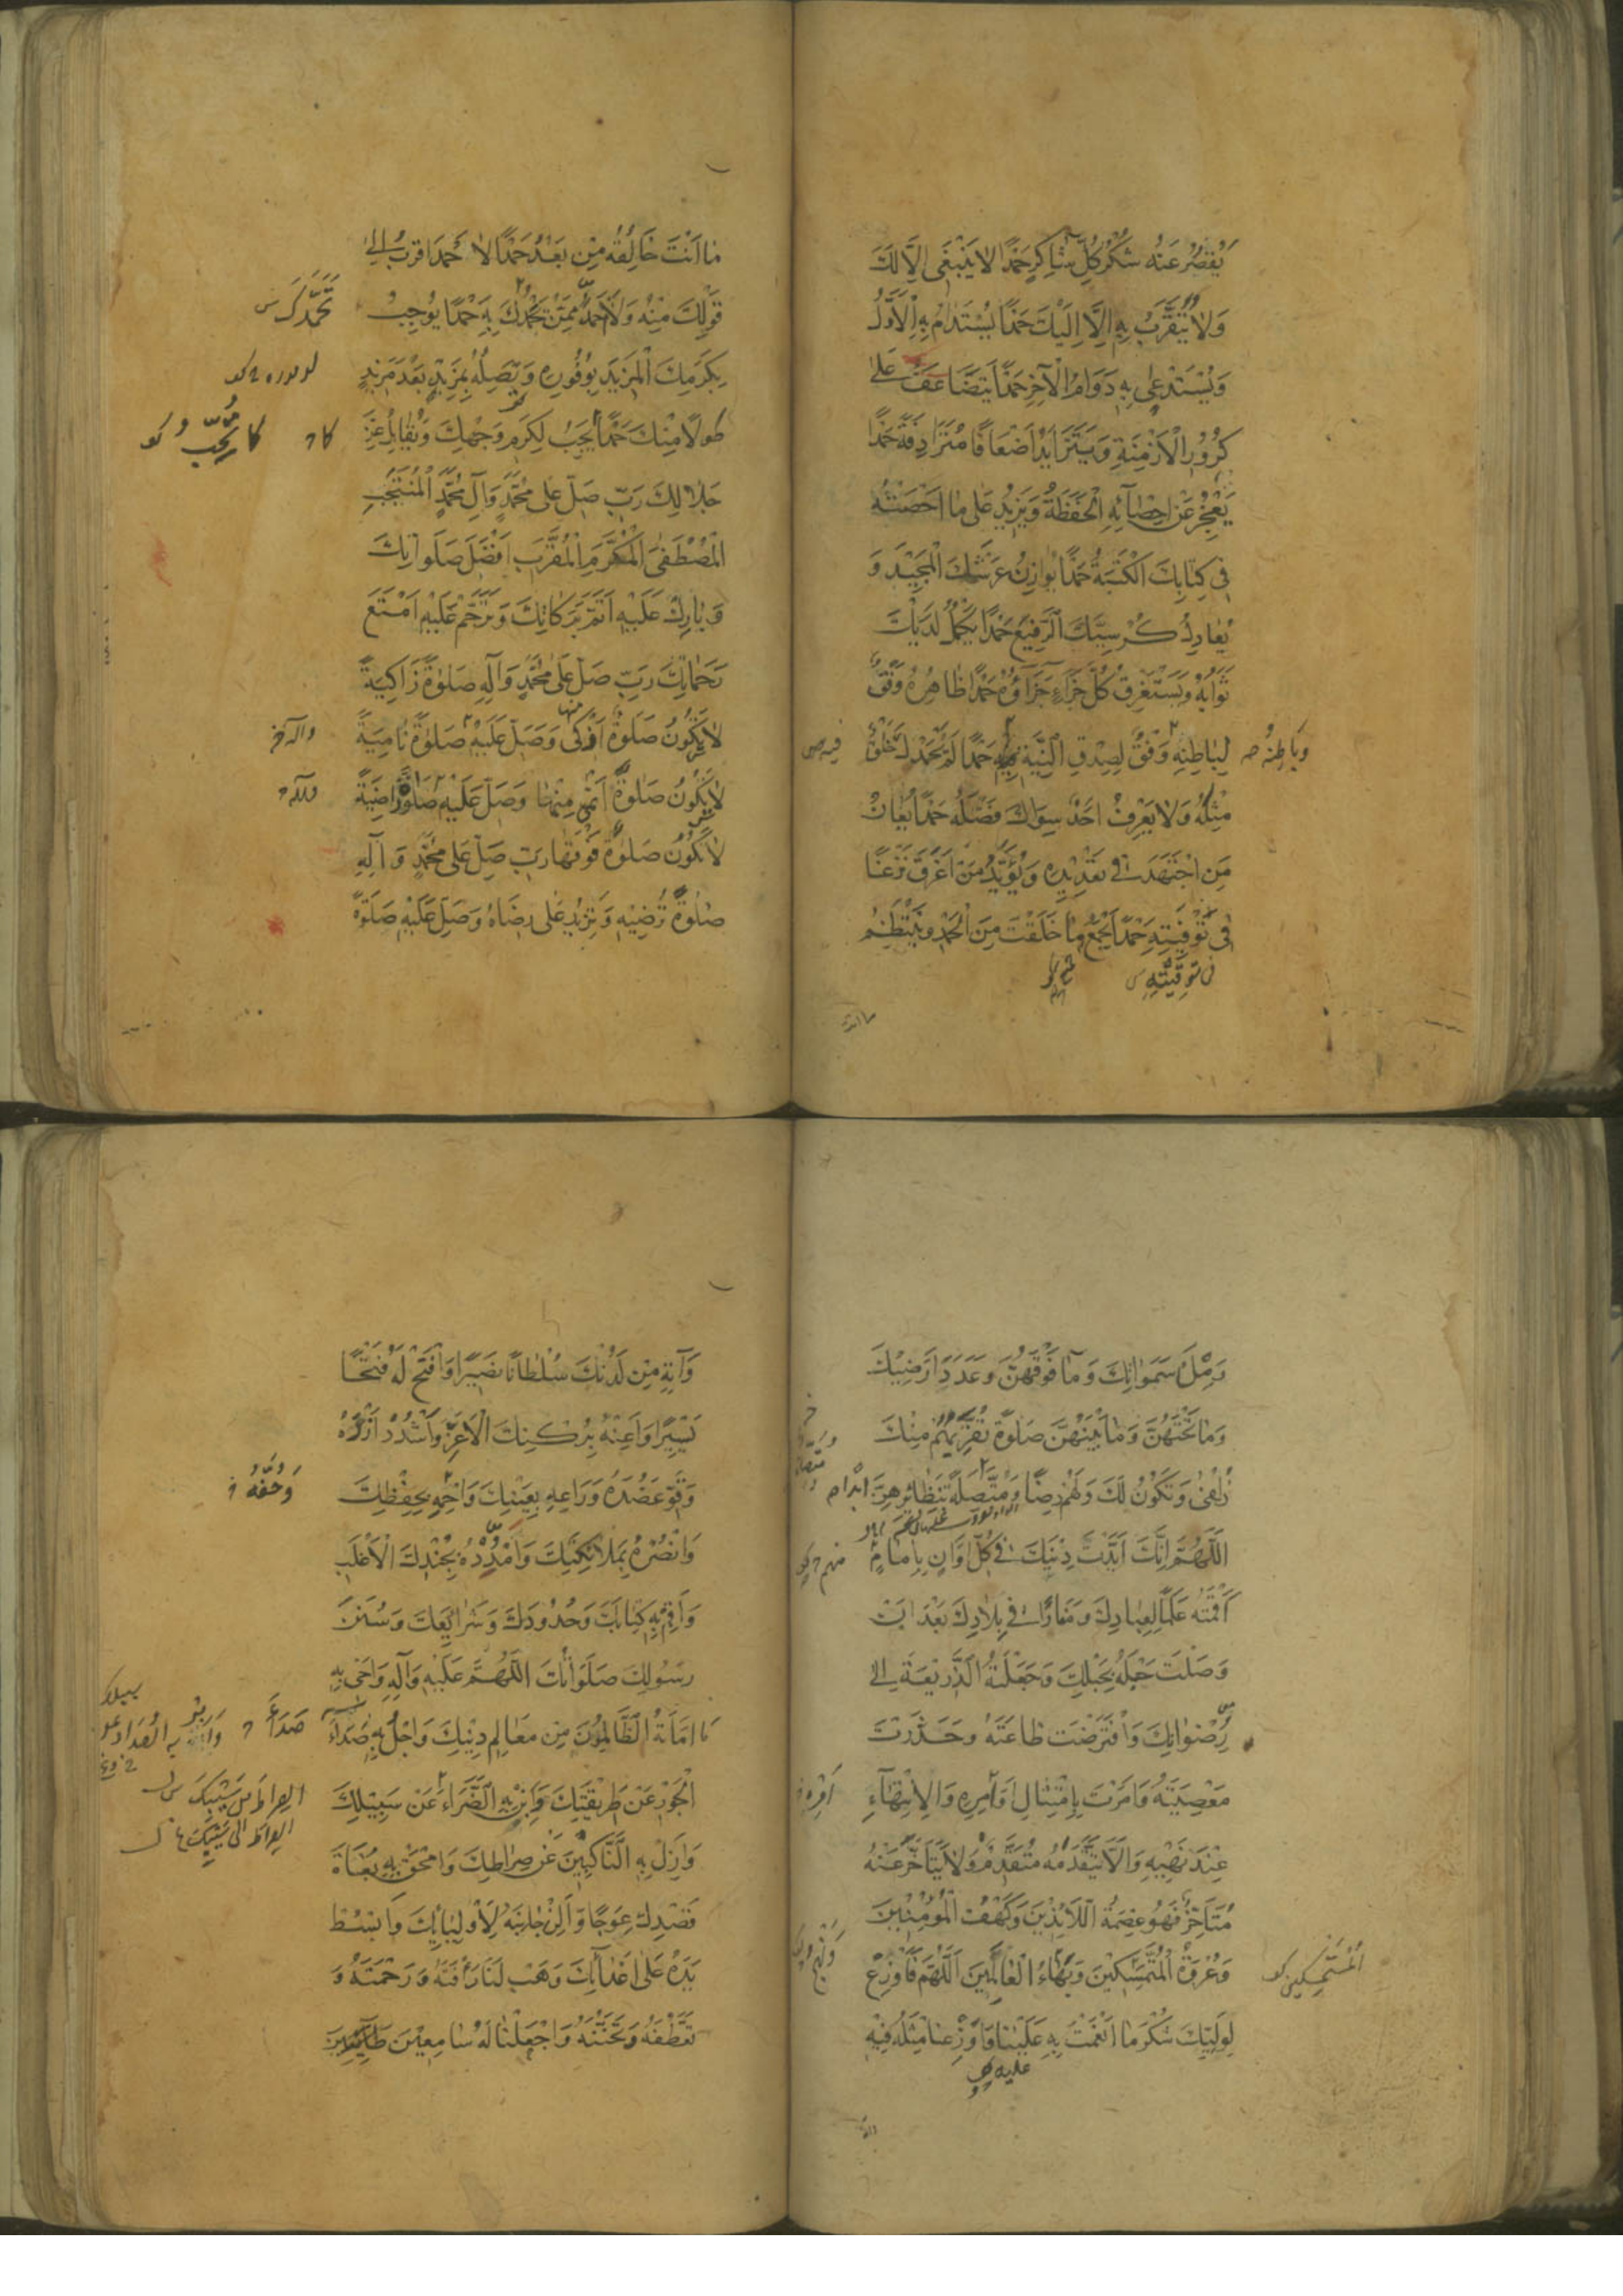 يَقْصُرُ عَنْهُ شُكْرُ كُلِّ شَاكِرٍ حَمْدًا لَا يَنْبَغِى اِلَّا لَكَ
وَلَا يُتَقَرَّبُ بِهِ اِلَّا اِلَيْكَ حَمْدًا يُسْتَدَامُ بِهِ الْاَوَّلُ
وَيُسْتَدْعَى بِهِ دَوَامُ الْآخِرِ حَمْدًا يَتَضَاعَفُ عَلَى
كُرُورِ الْاَزْمِنَةِ وَيَتَزَايَدُ اَضْعَافًا مُتَرَادِفَةً حَمْدًا
يَعْجِزُ عَنْ اِحْصَآئِهِ الْحَفَظَةُ وَيَزِيدُ عَلَى مَا اَحْصَتْهُ
فِى كِتَابِكَ الْكَتَبَةُ حَمْدًا يُوَازِنُ عَرْشَكَ الْمَجِيدَ وَ
يُعَادِلُ كُرْسِيَّكَ الرَّفِيعَ حَمْدًا يَكْمُلُ لَدَيْكَ
ثَوَابُهُ وَيَسْتَغْرِقُ كُلَّ جَزَاءٍ جَزَآؤُهُ حَمْدًا ظَاهِرُهُ وَفْقٌ
وَبَاطِنُهُ
لِبَاطِنِهِ وَفْقٌ لِصِدْقِ النِّيَّةِ حَمْدًا لَمْ يَحْمَدْكَ خَلْقٌ
فيه
مِثْلَهُ وَلَا يَعْرِفُ اَحَدٌ سِوَاكَ فَضْلَهُ حَمْدًا يُعَانُ
مَنِ اجْتَهَدَ فِى تَعْدِيدِهِ وَيُؤَيَّدُ مَنْ اَغْرَقَ نَزْعًا
فِى تَوْفِيَتِهِ حَمْدًا يَجْمَعُ مَا خَلَقْتَ مِنَ الْحَمْدِ وَيَنْتَظِمُ
ما انت
مَا اَنْتَ خَالِقُهُ مِنْ بَعْدُ حَمْدًا لَا حَمْدَ اَقْرَبُ اِلَى
قَوْلِكَ مِنْهُ وَلَا اَحْمَدَ مِمَّنْ يَحْمَدُكَ بِهِ حَمْدًا يُوجِبُ
بِكَرَمِكَ الْمَزِيدَ بِوُفُورِهِ وَتَصِلُهُ بِمَزِيدٍ بَعْدَ مَزِيدٍ
طَوْلًا مِنْكَ حَمْدًا يَجِبُ لِكَرَمِ وَجْهِكَ وَيُقَابِلُ عِزَّ
جَلَالِكَ رَبِّ صَلِّ عَلَى مُحَمَّدٍ وَآلِ مُحَمَّدٍ الْمُنْتَجَبِ
الْمُصْطَفَى الْمُكَرَّمِ الْمُقَرَّبِ اَفْضَلَ صَلَوَاتِكَ
وَبَارِكْ عَلَيْهِ اَتَمَّ بَرَكَاتِكَ وَتَرَحَّمْ عَلَيْهِ اَمْتَعَ
رَحَمَاتِكَ رَبِّ صَلِّ عَلَى مُحَمَّدٍ وَآلِهِ صَلَوةً زَاكِيَةً
لَا تَكُونُ صَلَوةٌ اَزْكَى مِنْهَا وَصَلِّ عَلَيْهِ صَلَوةً نَامِيَةً
وآله
لَا تَكُونُ صَلَوةٌ اَنْمَى مِنْهَا وَصَلِّ عَلَيْهِ صَلَوةً رَاضِيَةً
وآله
لَا تَكُونُ صَلَوةٌ فَوْقَهَا رَبِّ صَلِّ عَلَى مُحَمَّدٍ وَآلِهِ
صَلَوةً تُرْضِيهِ وَتَزِيدُ عَلَى رِضَاهُ وَصَلِّ عَلَيْهِ صَلَوةً
وَمِلْءَ سَمَوَاتِكَ وَمَا فَوْقَهُنَّ وَعَدَدَ اَرَضِيكَ
وَمَا تَحْتَهُنَّ وَمَا بَيْنَهُنَّ صَلَوةً تُقَرِّبُهُمْ مِنْكَ
زُلْفَى وَتَكُونُ لَكَ وَلَهُمْ رِضًا وَمُتَّصِلَةً بِنَظَائِرِهِنَّ اَبَدًا
اَللَّهُمَّ اِنَّكَ اَيَّدْتَ دِينَكَ فِى كُلِّ اَوَانٍ بِاِمَامٍ
اَقَمْتَهُ عَلَمًا لِعِبَادِكَ وَمَنَارًا فِى بِلَادِكَ بَعْدَ اَنْ
وَصَلْتَ حَبْلَهُ بِحَبْلِكَ وَجَعَلْتَهُ الذَّرِيعَةَ اِلَى
رِضْوَانِكَ وَافْتَرَضْتَ طَاعَتَهُ وَحَذَّرْتَ
مَعْصِيَتَهُ وَاَمَرْتَ بِامْتِثَالِ اَوَامِرِهِ وَالْاِنْتِهَآءِ
عِنْدَ نَهْيِهِ وَاَلَّا يَتَقَدَّمَهُ مُتَقَدِّمٌ وَلَا يَتَاَخَّرَ عَنْهُ
مُتَاَخِّرٌ فَهُوَ عِصْمَةُ اللَّائِذِينَ وَكَهْفُ الْمُؤْمِنِينَ
وَعُرْوَةُ الْمُتَمَسِّكِينَ وَبَهَاءُ الْعَالَمِينَ اَللَّهُمَّ فَاَوْزِعْ
الْمُسْتَمْسِكِينَ
لِوَلِيِّكَ شُكْرَ مَا اَنْعَمْتَ بِهِ عَلَيْنَا وَاَوْزِعْنَا مِثْلَهُ فِيهِ
عليه
وَآتِهِ مِنْ لَدُنْكَ سُلْطَانًا نَصِيرًا وَافْتَحْ لَهُ فَتْحًا
يَسِيرًا وَاَعِنْهُ بِرُكْنِكَ الْاَعَزِّ وَاشْدُدْ اَزْرَهُ
وَقَوِّ عَضُدَهُ وَرَاعِهِ بِعَيْنِكَ وَاحْمِهِ بِحِفْظِكَ
وَحُفَّهُ
وَانْصُرْهُ بِمَلَائِكَتِكَ وَامْدُدْهُ بِجُنْدِكَ الْاَغْلَبِ
وَاَقِمْ بِهِ كِتَابَكَ وَحُدُودَكَ وَشَرَائِعَكَ وَسُنَنَ
رَسُولِكَ صَلَوَاتُكَ اَللَّهُمَّ عَلَيْهِ وَآلِهِ وَاَحْىِ بِهِ
مَا اَمَاتَهُ الظَّالِمُونَ مِنْ مَعَالِمِ دِينِكَ وَاجْلُ بِهِ صَدَاءَ
الْجَوْرِ عَنْ طَرِيقَتِكَ وَاَبِنْ بِهِ الضَّرَّاءَ عَنْ سَبِيلِكَ
وَاَزِلْ بِهِ النَّاكِبِينَ عَنْ صِرَاطِكَ وَامْحَقْ بِهِ بُغَاةَ
قَصْدِكَ عِوَجًا وَاَلِنْ جَانِبَهُ لِاَوْلِيَائِكَ وَابْسُطْ
يَدَهُ عَلَى اَعْدَآئِكَ وَهَبْ لَنَا رَأْفَتَهُ وَرَحْمَتَهُ وَ
تَعَطُّفَهُ وَتَحَنُّنَهُ وَاجْعَلْنَا لَهُ سَامِعِينَ